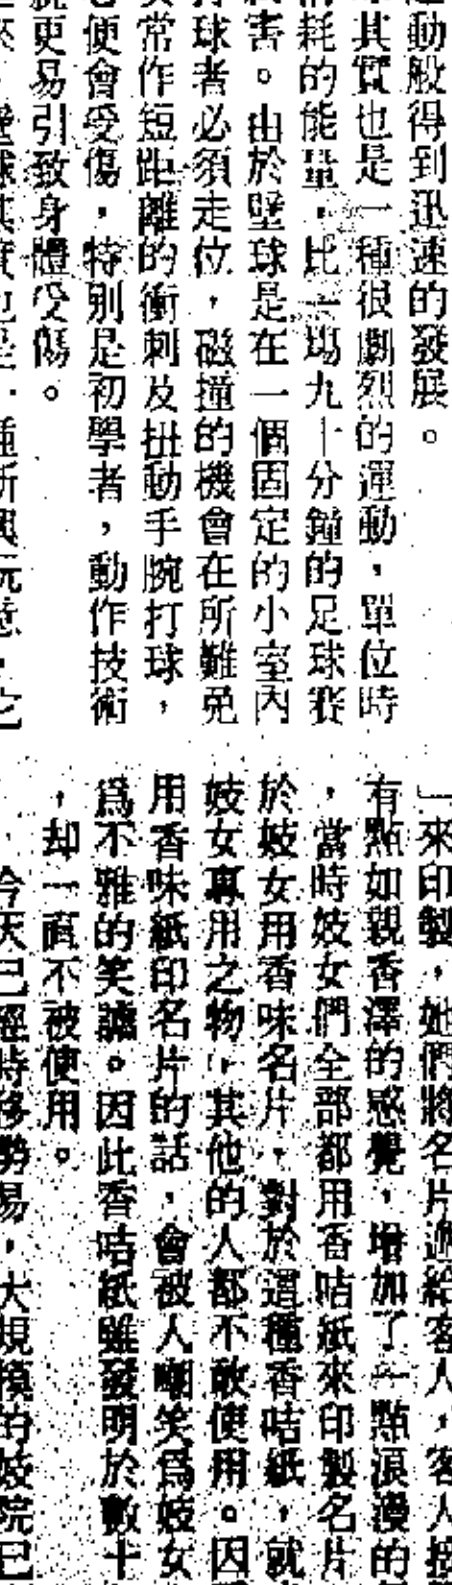 動般得到迅速的發展。
其實也是一種很劇烈的運動，單位時
耗的能量，比一場九十分鐘的足球賽
害。由於壁球是在一個固定的小室內
球者必須走位，磁撞的機會在所難免
常作短距離的衝刺及扭動手腕打球，
便會受傷，特別是初學者，動作技術
更易引致身體受傷。
壁球其實也是一種新興玩意，它
來印製，她們將名片遞給客人，客人接
有點如親香澤的感覺，增加了一點浪漫的
，當時妓女們全部都用香咭紙來印製名片
於妓女用香味名片，對於這種香咭紙，就
妓女專用之物，其他的人都不敢使用。因
用香味紙印名片的話，會被人嘲笑爲妓女
爲不雅的笑謔。因此香咭紙雖發明於數十
，却一直不被使用。
今天已經時移勢易，大規模的妓院已